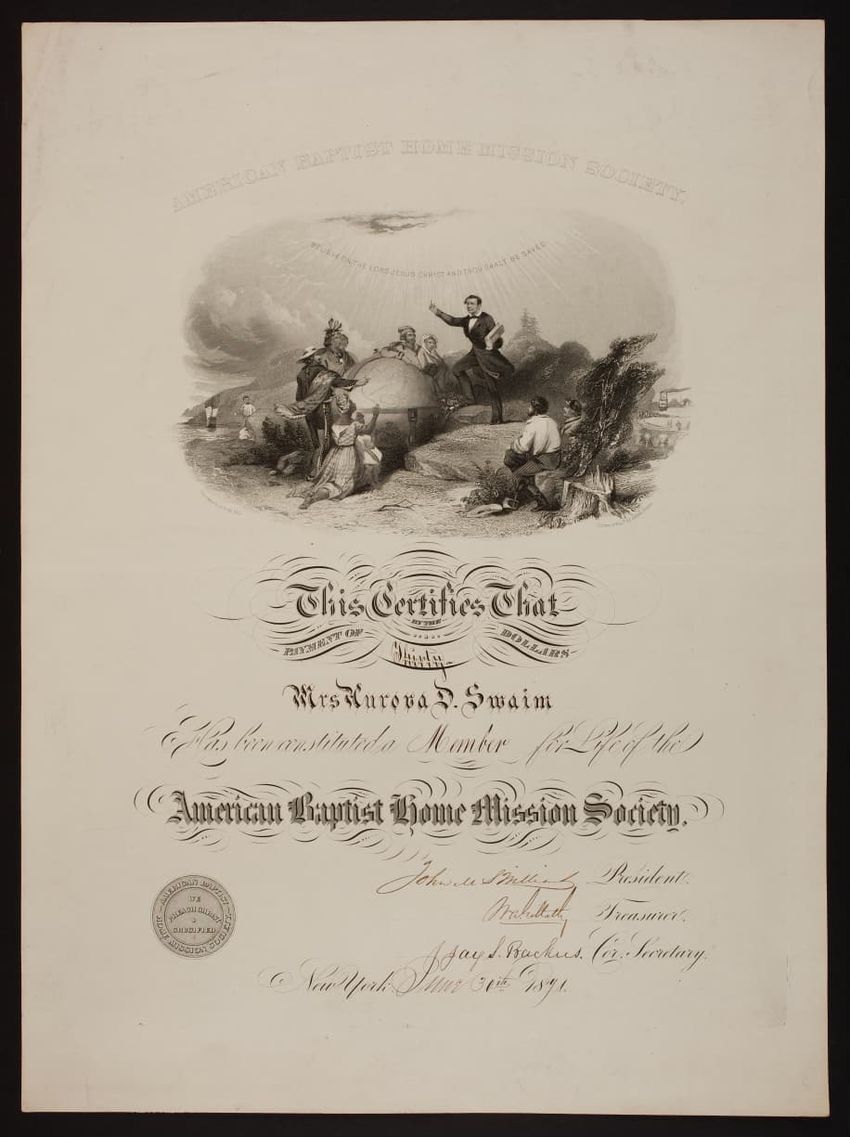 AMERICAN BAPTIST HOME MISSION SOCIETY.
BELIEVE ON THE LORD JESUS CHRIST AND THOU SHALT BE SAVED
This Certifies That
BY THE
PAYMENT OF Thirty DOLLARS
Mrs Aurora D. Swaim
Has been constituted a Member for Life of the
American Baptist Home Mission Society.
President.
Treasurer.
J Jay S. Backus. Cor. Secretary.
New York June 30th 1871.
AMERICAN BAPTIST HOME MISSION SOCIETY
WE PREACH CHRIST & CRUCIFIED